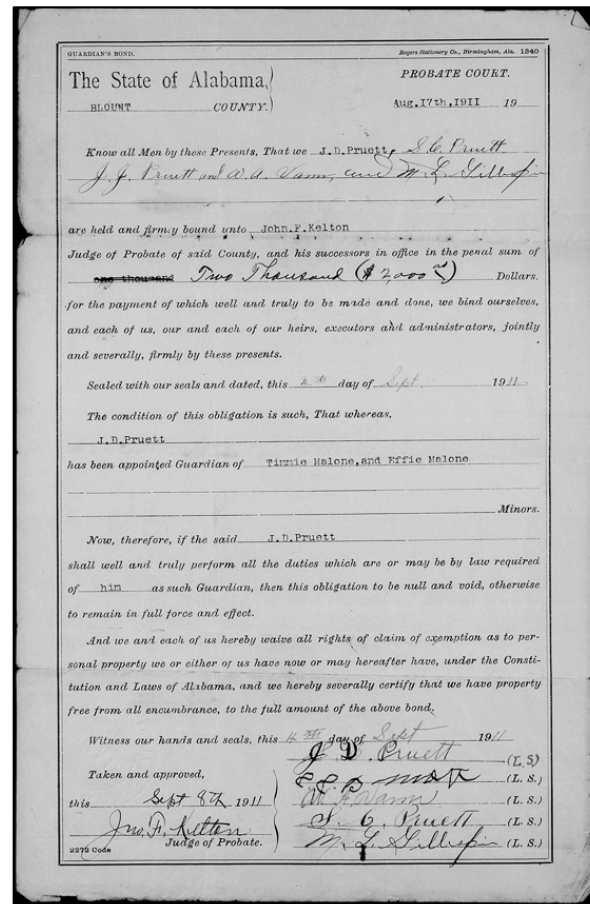 GUARDIAN'S BOND. Rogers Stationery Co., Birmingham, Ala. 1340
The State of Alabama, PROBATE COURT.
BLOUNT COUNTY. Aug.17th,1911 19
Know all Men by these Presents, That we J.D.Pruett, S. C. Pruett
J. J. Pruett and Vann, and M. L. Gillespie
are held and firmly bound unto John.F.Kelton
Judge of Probate of said County, and his successors in office in the penal sum of
one thousand Two Thousand ($ 2,000 Dollars.
for the payment of which well and truly to be made and done, we bind ourselves,
and each of us, our and each of our heirs, executors and administrators, jointly
and severally, firmly by these presents.
Sealed with our seals and dated, this 4th day of Sept. 1911
The condition of this obligation is such, That whereas,
J.D.Pruett
has been appointed Guardian of Timmie Malone,and Effie Malone
Minors.
Now, therefore, if the said J.D.Pruett
shall well and truly perform all the duties which are or may be by law required
of him as such Guardian, then this obligation to be null and void, otherwise
to remain in full force and effect.
And we and each of us hereby waive all rights of claim of exemption as to per-
sonal property we or either of us have now or may hereafter have, under the Consti-
tution and Laws of Alabama, and we hereby severally certify that we have property
free from all encumbrance, to the full amount of the above bond.
Witness our hands and seals, this 4th day of Sept 1911
J D Pruett (L.S)
Taken and approved, (L. S.)
this Sept 8th 1911 Vann (L. S.)
Jno. F. Kelton S. C. Pruett (L. S.)
Judge of Probate. M. L. Gillespie (L. S.)
2272 Code